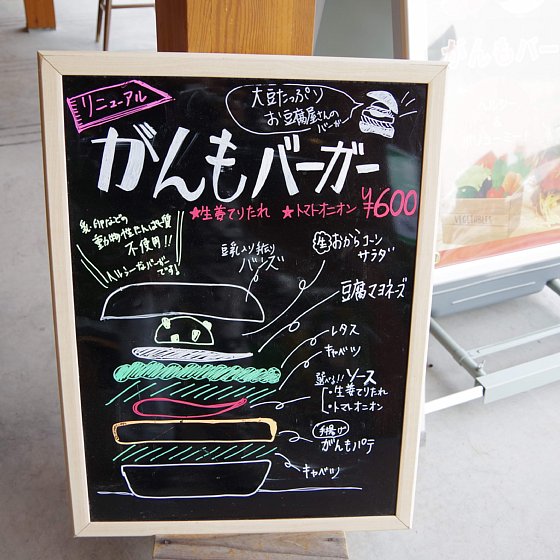 リニューアル
大豆たっぷり
お豆腐屋さんの
バーガー
がんもバーガー
★生姜てりたれ ★トマトオニオン ¥600
乳・卵などの
動物性たんぱく質
不使用!!
ヘルシーなバーガー
です!
豆乳入り手作り
バンズ
生おからコーン
サラダ
豆腐マヨネーズ
レタス
キャベツ
選べる!!ソース
・生姜てりたれ
・トマトオニオン
手揚げ
がんもパテ
キャベツ
がんもバー
VEGETABLES